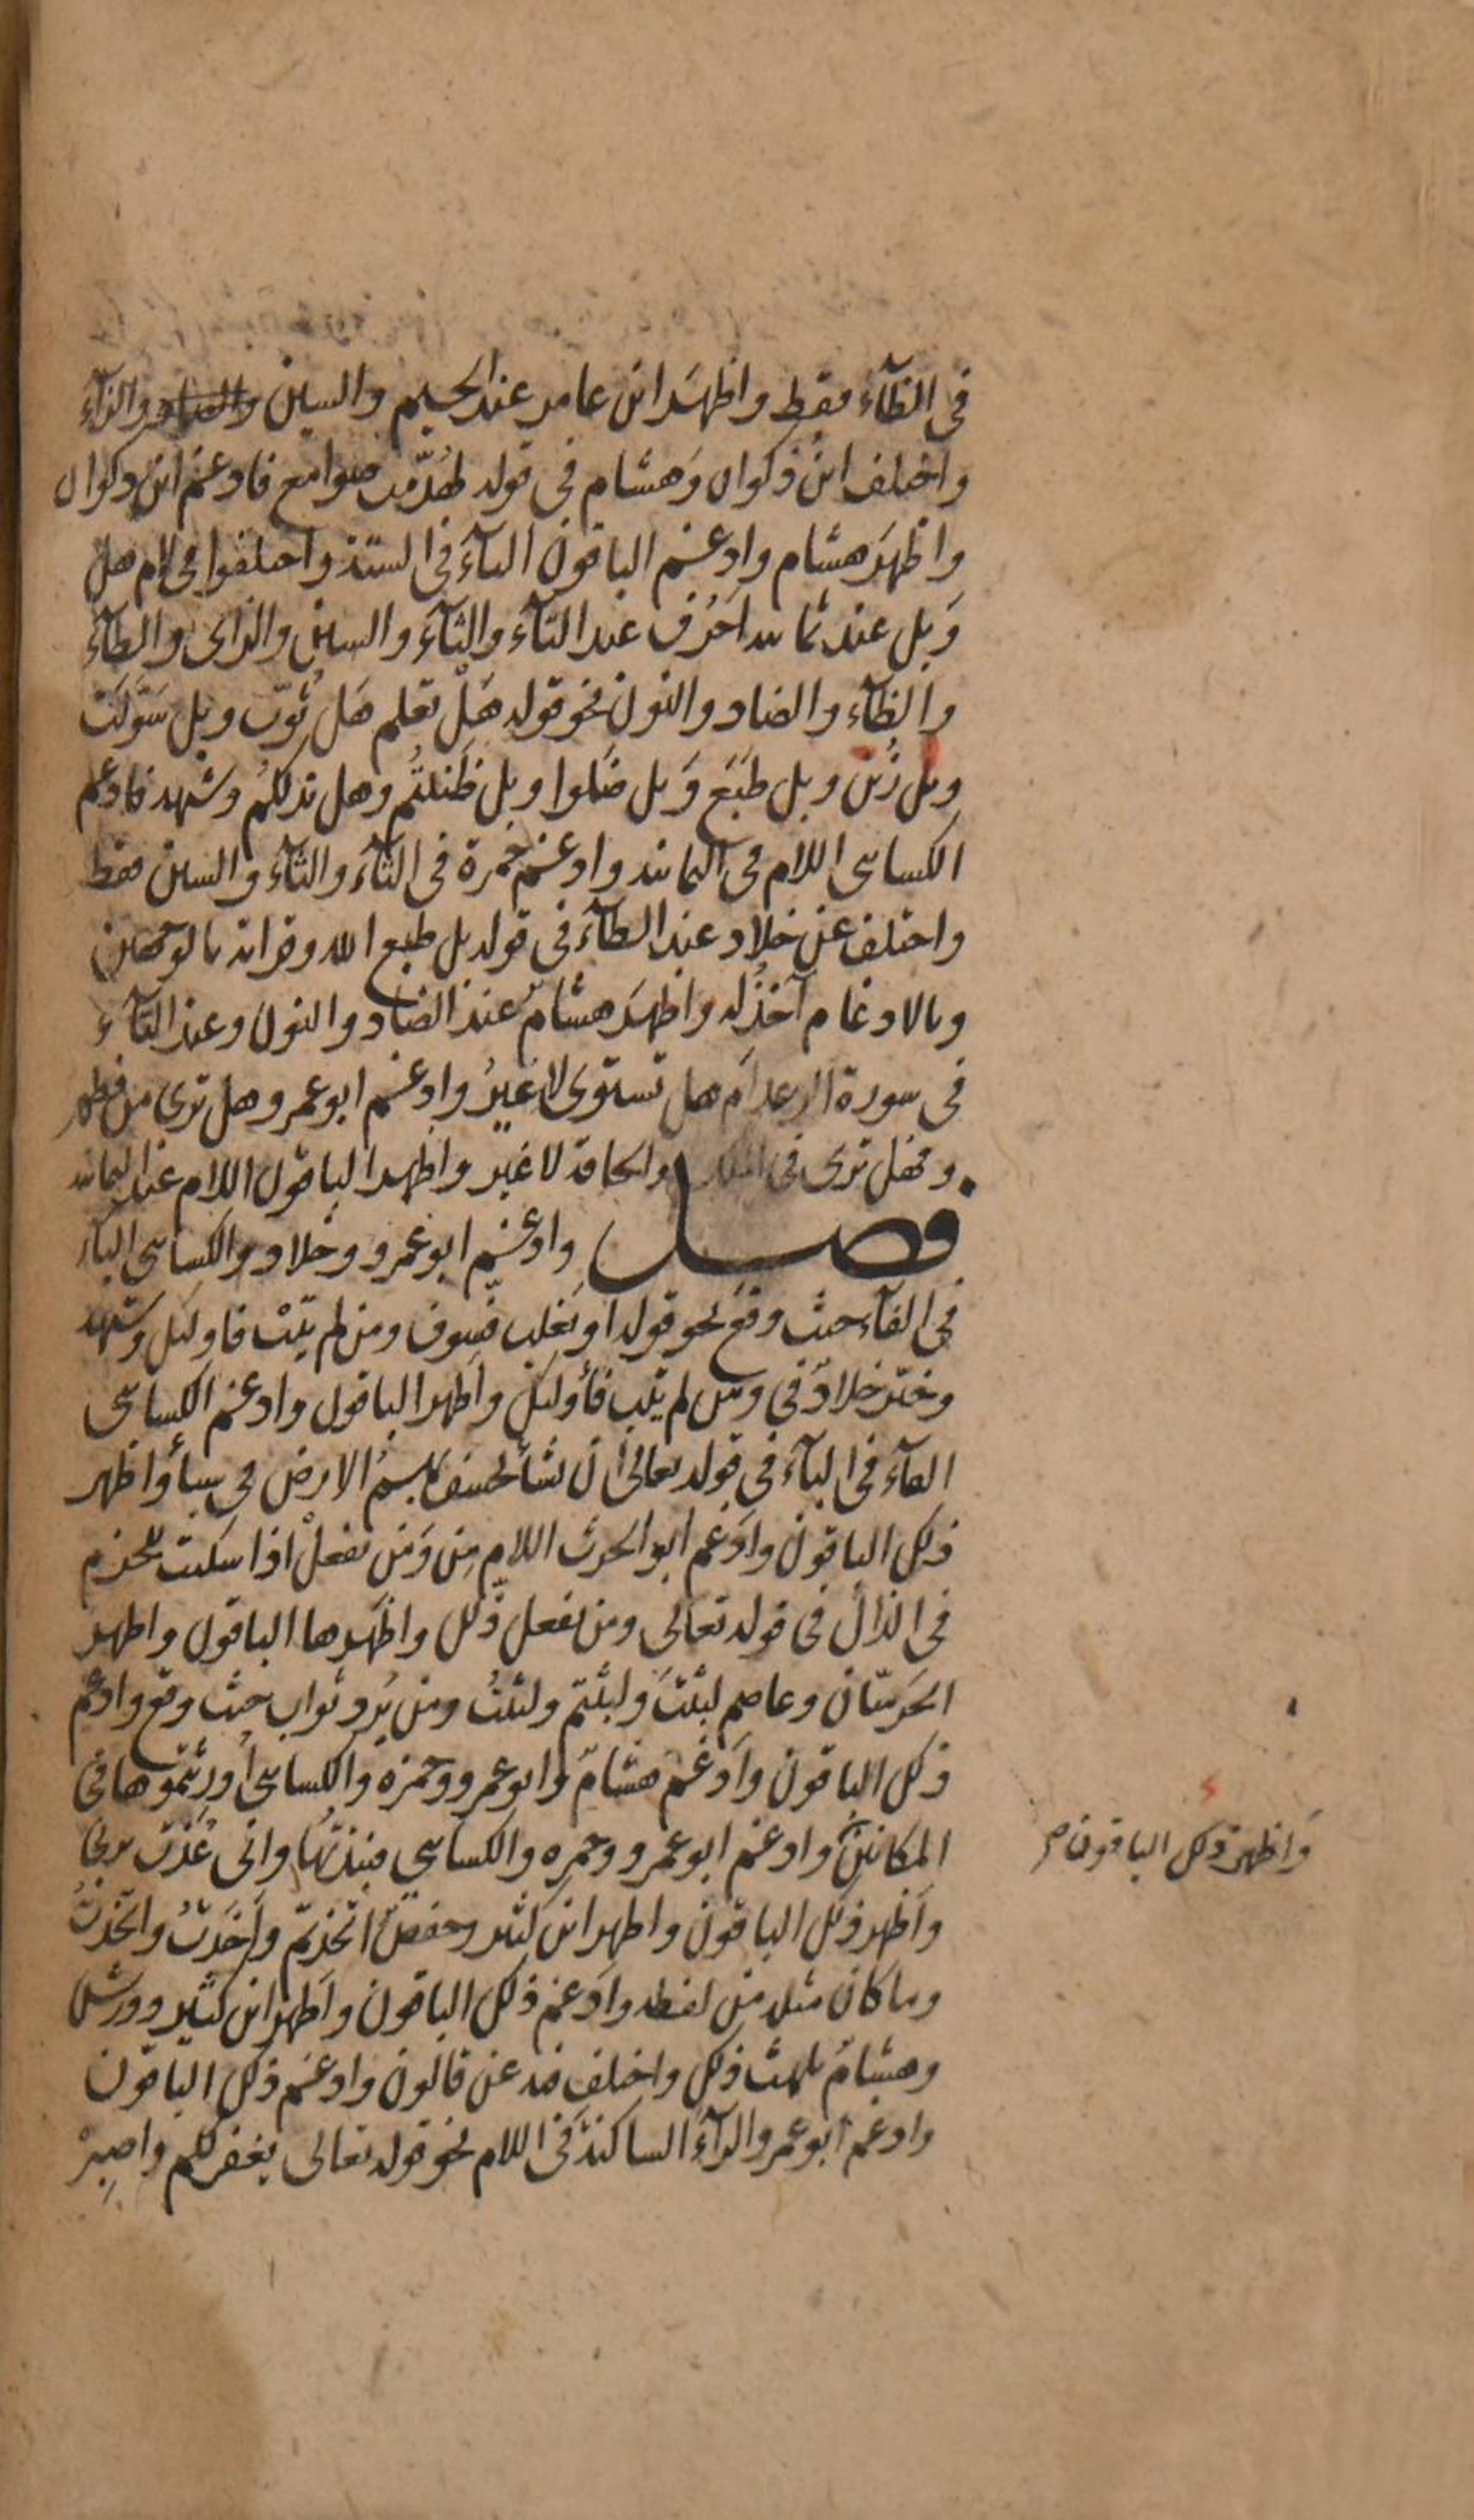 في الظآء فقط واظهَر ابن عامر عند الجيم والسين والزآء
واختلف ابن ذكوان وَهشام في قوله لهُدّمت صوامع فادغم ابن ذكوان
واظهَر هشام وادغم الباقون التآء في الستة واختلفوا في لام هل
وَبل عند ثمانية اَحرُف عند التآء والثآء والسين والزاى والطآء
والظآء والضاد والنون نحو قوله هَلْ تعلم هَل ثُوّب وبل سَوّلَت
وبل زُيّن وبل طَبَع وَبل ضَلوا وبل ظَننتُم وهل ندلكُم وشبهه فادغم
الكسائى اللام في الثمانية وادغم حمزة في التآء والثآء والسين فقط
واختلف عن خلاد عند الطآء في قوله بل طبع الله وقراته بالوجهين
وبالادغام آخذُ له واظهَر هشامٌ عند الضاد والنون وعند التآء
في سورة الرعد اَم هل تستوى لا غيرُ وادغم ابو عمرو هل ترى من فطور
وفهل ترى في الملك والحاقة لا غير واظهر الباقون اللام عند الثمانية
فصل وادغم ابو عمرو وخلاد والكسائى البآء
في الفآء حيث وقع نحو قوله او يَغلب فسوف ومن لم يتبْ فاولئك وشبهه
وخيّر خلادٌ في ومن لم يتب فأولئك واظهر الباقون وادغم الكسائى
الفآء في البآء في قوله تعالى ان نشأ نخسف بهمُ الارض في سبأ واظهر
ذلك الباقون وادغم ابو الحرث اللام مِن وَمَن يفعلْ اذا سكنت للجزم
في الذال في قوله تعالى ومن يفعل ذّلك واظهَرها الباقون واظهر
الحرميّان وعاصم لبثتَ ولبثتم ولبثتُ ومن يُرد ثواب حيث وقع وادغم
ذلك الباقون وادغم هشامٌ وابو عمرو وحمزه والكسائى اُورثتموها في
المكانين وادغم ابو عمرو وحمزه والكسائي فنبذتُها وانى عُذت بربى
واظهر ذلك الباقون واظهر ابن كثير وحفصٌ اتّخذتم وأخذتُ واتخذتُ
وما كان مثله من لفظه وادغم ذلك الباقون واظهر ابن كثير وورش
وهشامٌ يلهث ذلك واختلف فيه عن قالون وادغم ذلك الباقون
وادغم ابو عمرو الرآء الساكنة في اللام نحو قوله تعالى يغفر لكم واصبِرْ
وَاظهر ذلك الباقون صح